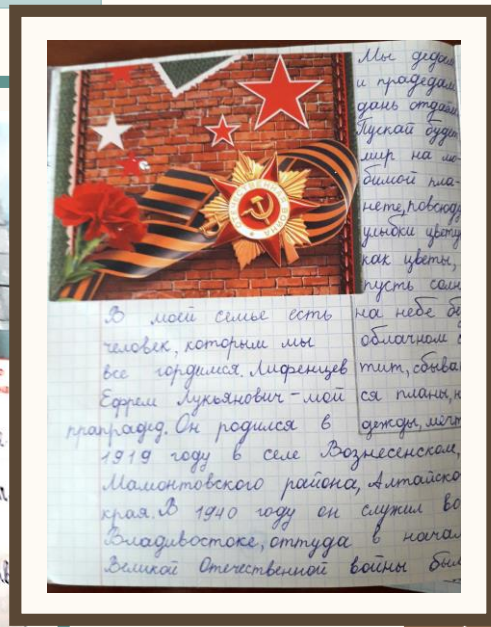 ОТЕЧЕСТВЕННАЯ ВОЙНА
Мы дедам
и прадедам
дань отдаём
Пускай будет
мир на лю-
бимой пла-
нете, повсюду
улыбки цвету
как цветы,
пусть солн
на небе бе
облачном с
тит, сбыва
ся планы, н
дежды, мечт
В моей семье есть
человек, которым мы
все гордимся. Лифенцев
Ефрем Лукьянович - мой
прапрадед. Он родился в
1919 году в селе Вознесенском,
Мамонтовского района, Алтайско
края. В 1940 году он служил во
Владивостоке, оттуда в начал
Великой Отечественной войны был